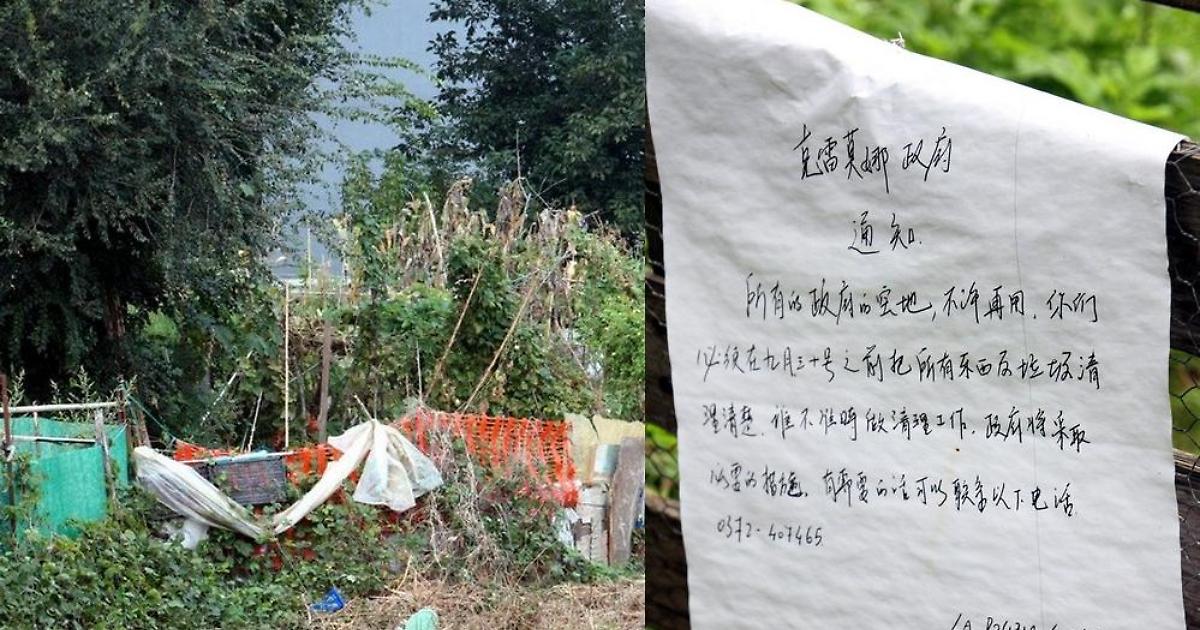 克雷莫娜 政府
通知.
所有的政府的空地,不许再用.你们
必须在九月三十号之前把所有东西及垃圾清
理清楚.谁不准时做清理工作.政府将采取
必要的措施.有需要的话可以联系以下电话
0372-407465
LA